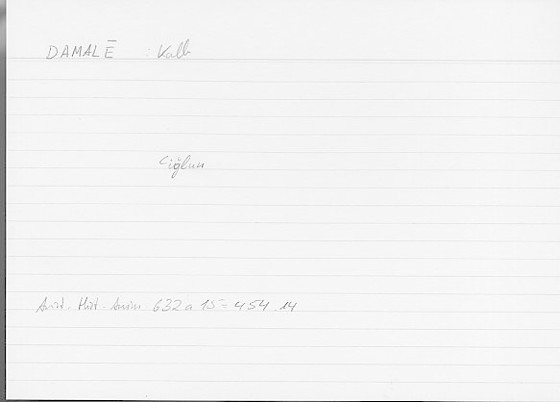 DAMALĒ : Kalb
ʿiǧlun
Arist. Hist. Anim. 632a 15 = 454.14